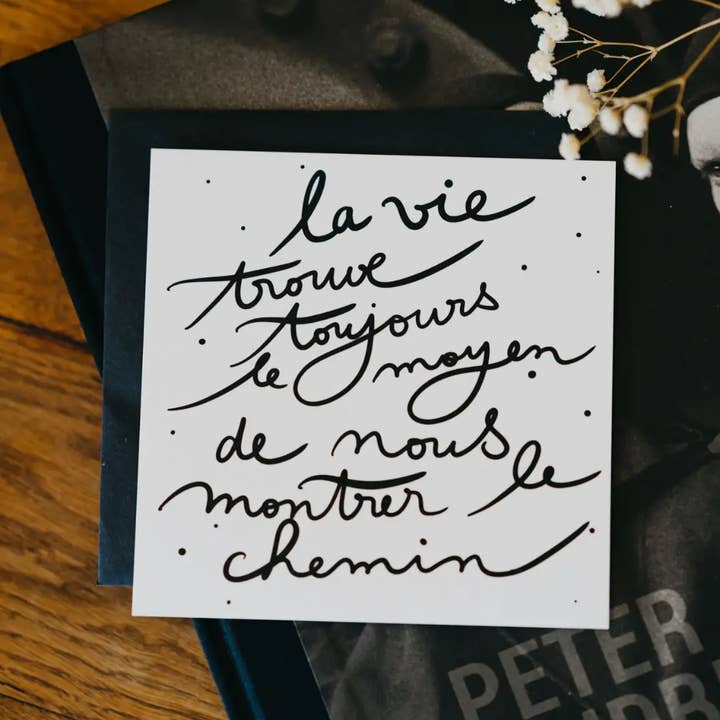 la vie
trouve
toujours
le moyen
de nous
montrer le
chemin
PETER